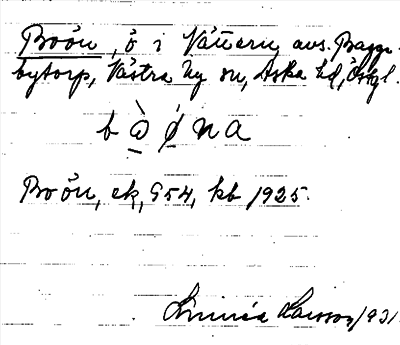 Broön, ö i Vättern avs. Bagge-
bytorp, Västra Ny sn, Aska hd, Östgl.
Broön, ek, 954, kb 1925.
Linnéa Larsson 1931